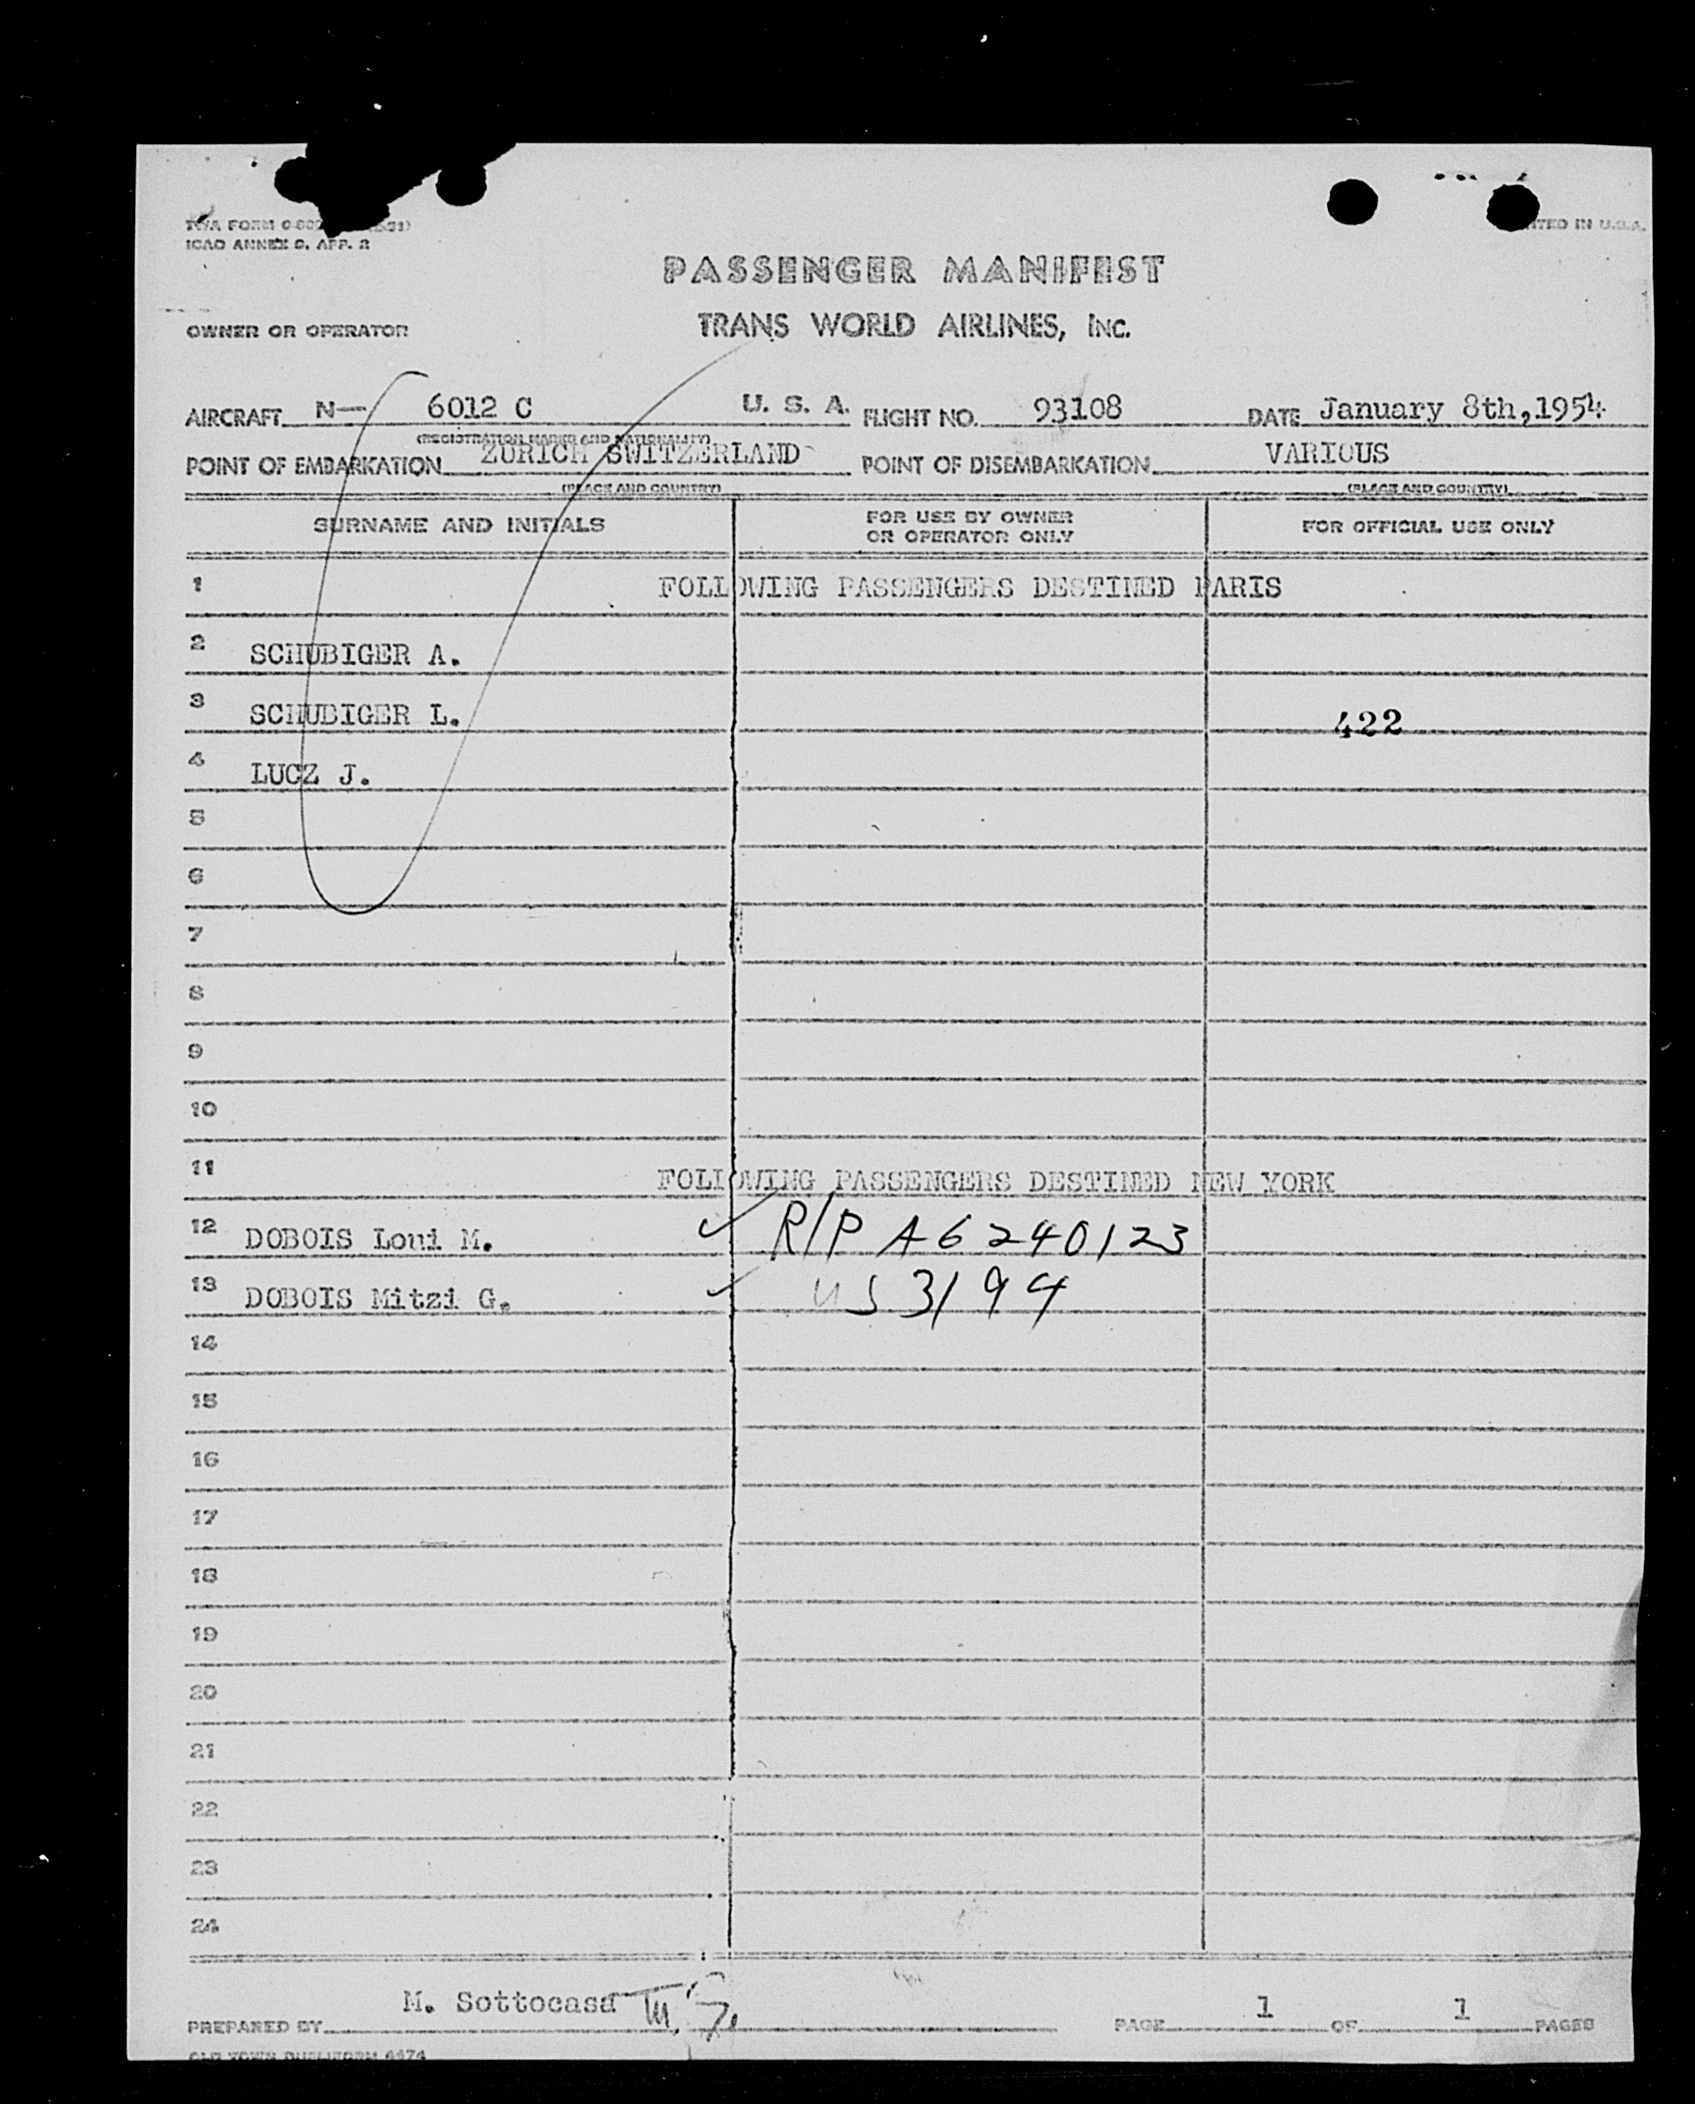 TWA FORM
ICAO ANNEX 9, APP. 2
IN U.S.A.
PASSENGER MANIFEST
OWNER OR OPERATOR TRANS WORLD AIRLINES, INC.
AIRCRAFT N— 6012 C U. S. A. FLIGHT NO. 93108 DATE January 8th,1954
(REGISTRATION MARKS AND NATIONALITY)
POINT OF EMBARKATION ZURICH SWITZERLAND POINT OF DISEMBARKATION VARIOUS
(PLACE AND COUNTRY) (PLACE AND COUNTRY)
SURNAME AND INITIALS FOR USE BY OWNER OR OPERATOR ONLY FOR OFFICIAL USE ONLY
1 FOLLOWING PASSENGERS DESTINED PARIS
2 SCHUBIGER A.
3 SCHUBIGER L. 422
4 LUCZ J.
5
6
7
8
9
10
11 FOLLOWING PASSENGERS DESTINED NEW YORK
12 DOBOIS Loui M. ✓ R/P A6240123
13 DOBOIS Mitzi G. ✓ US 3194
14
15
16
17
18
19
20
21
22
23
24
PREPARED BY M. Sottocasa PAGE 1 OF 1 PAGES
OLD TOWN DUPLIFORM 4474